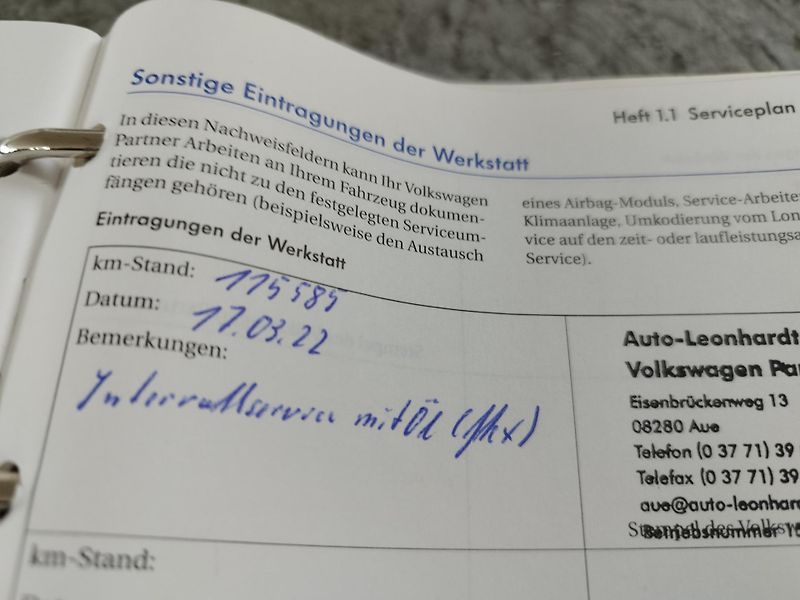 Sonstige Eintragungen der Werkstatt
Heft 1.1 Serviceplan
In diesen Nachweisfeldern kann Ihr Volkswagen
Partner Arbeiten an Ihrem Fahrzeug dokumen-
tieren die nicht zu den festgelegten Serviceum-
fängen gehören (beispielsweise den Austausch
eines Airbag-Moduls, Service-Arbeite
Klimaanlage, Umkodierung vom Lon
vice auf den zeit- oder laufleistungsa
Service).
Eintragungen der Werkstatt
km-Stand: 115585
Datum: 17.03.22
Bemerkungen:
Intervallservice mit Öl (flex)
Auto-Leonhardt
Volkswagen Pa
Eisenbrückenweg 13
08280 Aue
Telefon (0 37 71) 39
Telefax (0 37 71) 39
aue@auto-leonhar
Stempel des Volksw
Betriebsnummer 15
km-Stand: